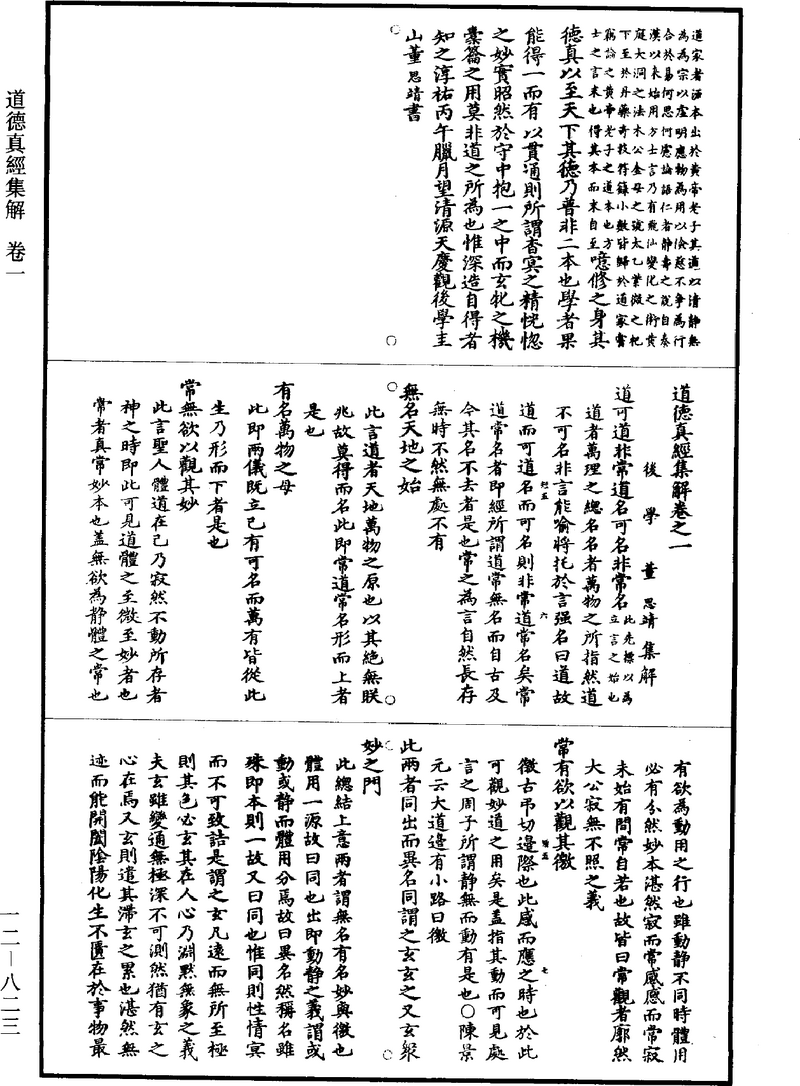 道德真經集解　卷一
道家者流本出於黃帝老子其道以清靜無
為為宗以虛明應物為用以儉慈不爭為行
合於易何思何慮論語仁者靜壽之說自秦
漢以來始用方士言乃有飛仙變化之術黃
庭大洞之法木公金母之號太乙紫微之祀
下至於丹藥奇技符籙小數皆歸於道家嘗
竊論之黃帝老子之道本也方
士之言末也得其本而末自至噫修之身其
德真以至天下其德乃普非二本也學者果
能得一而有以貫通則所謂杳冥之精恍惚
之妙實昭然於守中抱一之中而玄牝之機
橐籥之用莫非道之所為也惟深造自得者
知之淳祐丙午臘月望清源天慶觀後學圭
山董思靖書
道德真經集解卷之一
後學董思靖集解
道可道非常道名可名非常名此先標以為立言之始也
道者萬理之總名名者萬物之所指然道
不可名非言能喻將托於言强名曰道故
道而可道名而可名則非常道常名矣常
道常名者即經所謂道常無名而自古及
今其名不去者是也常之為言自然長存
無時不然無處不有
無名天地之始
此言道者天地萬物之原也以其絶無眹
兆故莫得而名此即常道常名形而上者
是也
有名萬物之母
此即兩儀既立已有可名而萬有皆從此
生乃形而下者是也
常無欲以觀其妙
此言聖人體道在己乃寂然不動所存者
神之時即此可見道體之至微至妙者也
常者真常妙本也蓋無欲為靜體之常也
有欲為動用之行也雖動靜不同時體用
必有分然妙本湛然寂而常感感而常寂
未始有間常自若也故皆曰常觀者廓然
大公寂無不照之義
常有欲以觀其徼
徼古弔切邊際也此感而應之時也於此
可觀妙道之用矣是蓋指其動而可見處
言之周子所謂靜無而動有是也○陳景
元云大道邊有小路曰徼
此兩者同出而異名同謂之玄玄之又玄衆
妙之門
此總結上意兩者謂無名有名妙與徼也
體用一源故曰同也出即動靜之義謂或
動或靜而體用分焉故曰異名然稱名雖
殊即本則一故又曰同也惟同則性情冥
而不可致詰是謂之玄凡遠而無所至極
則其色必玄其在人心乃淵默無象之義
夫玄雖變通無極深不可測然猶有玄之
心在焉又玄則遣其滯玄之累也湛然無
迹而能開闔陰陽化生不匱在於事物最
一二—八二三